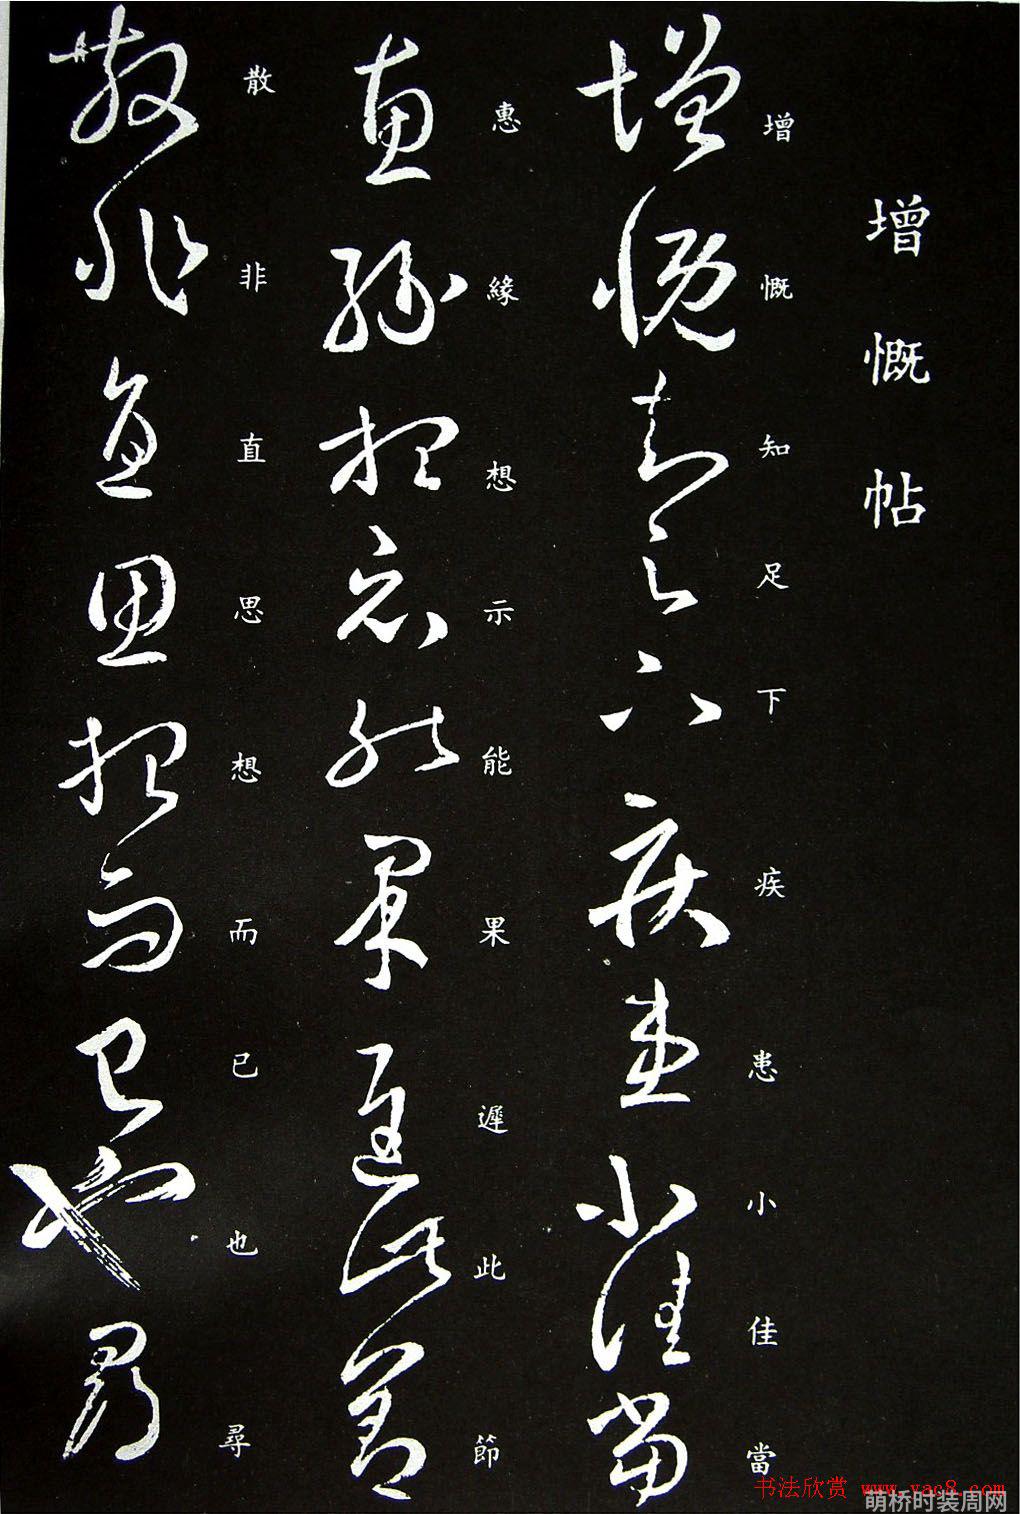 增慨帖
增慨知足下疾患小佳當
惠緣想示能果遲此節
散非直思想而已也尋
书法欣赏 www.yac8.com
萌桥时装周网